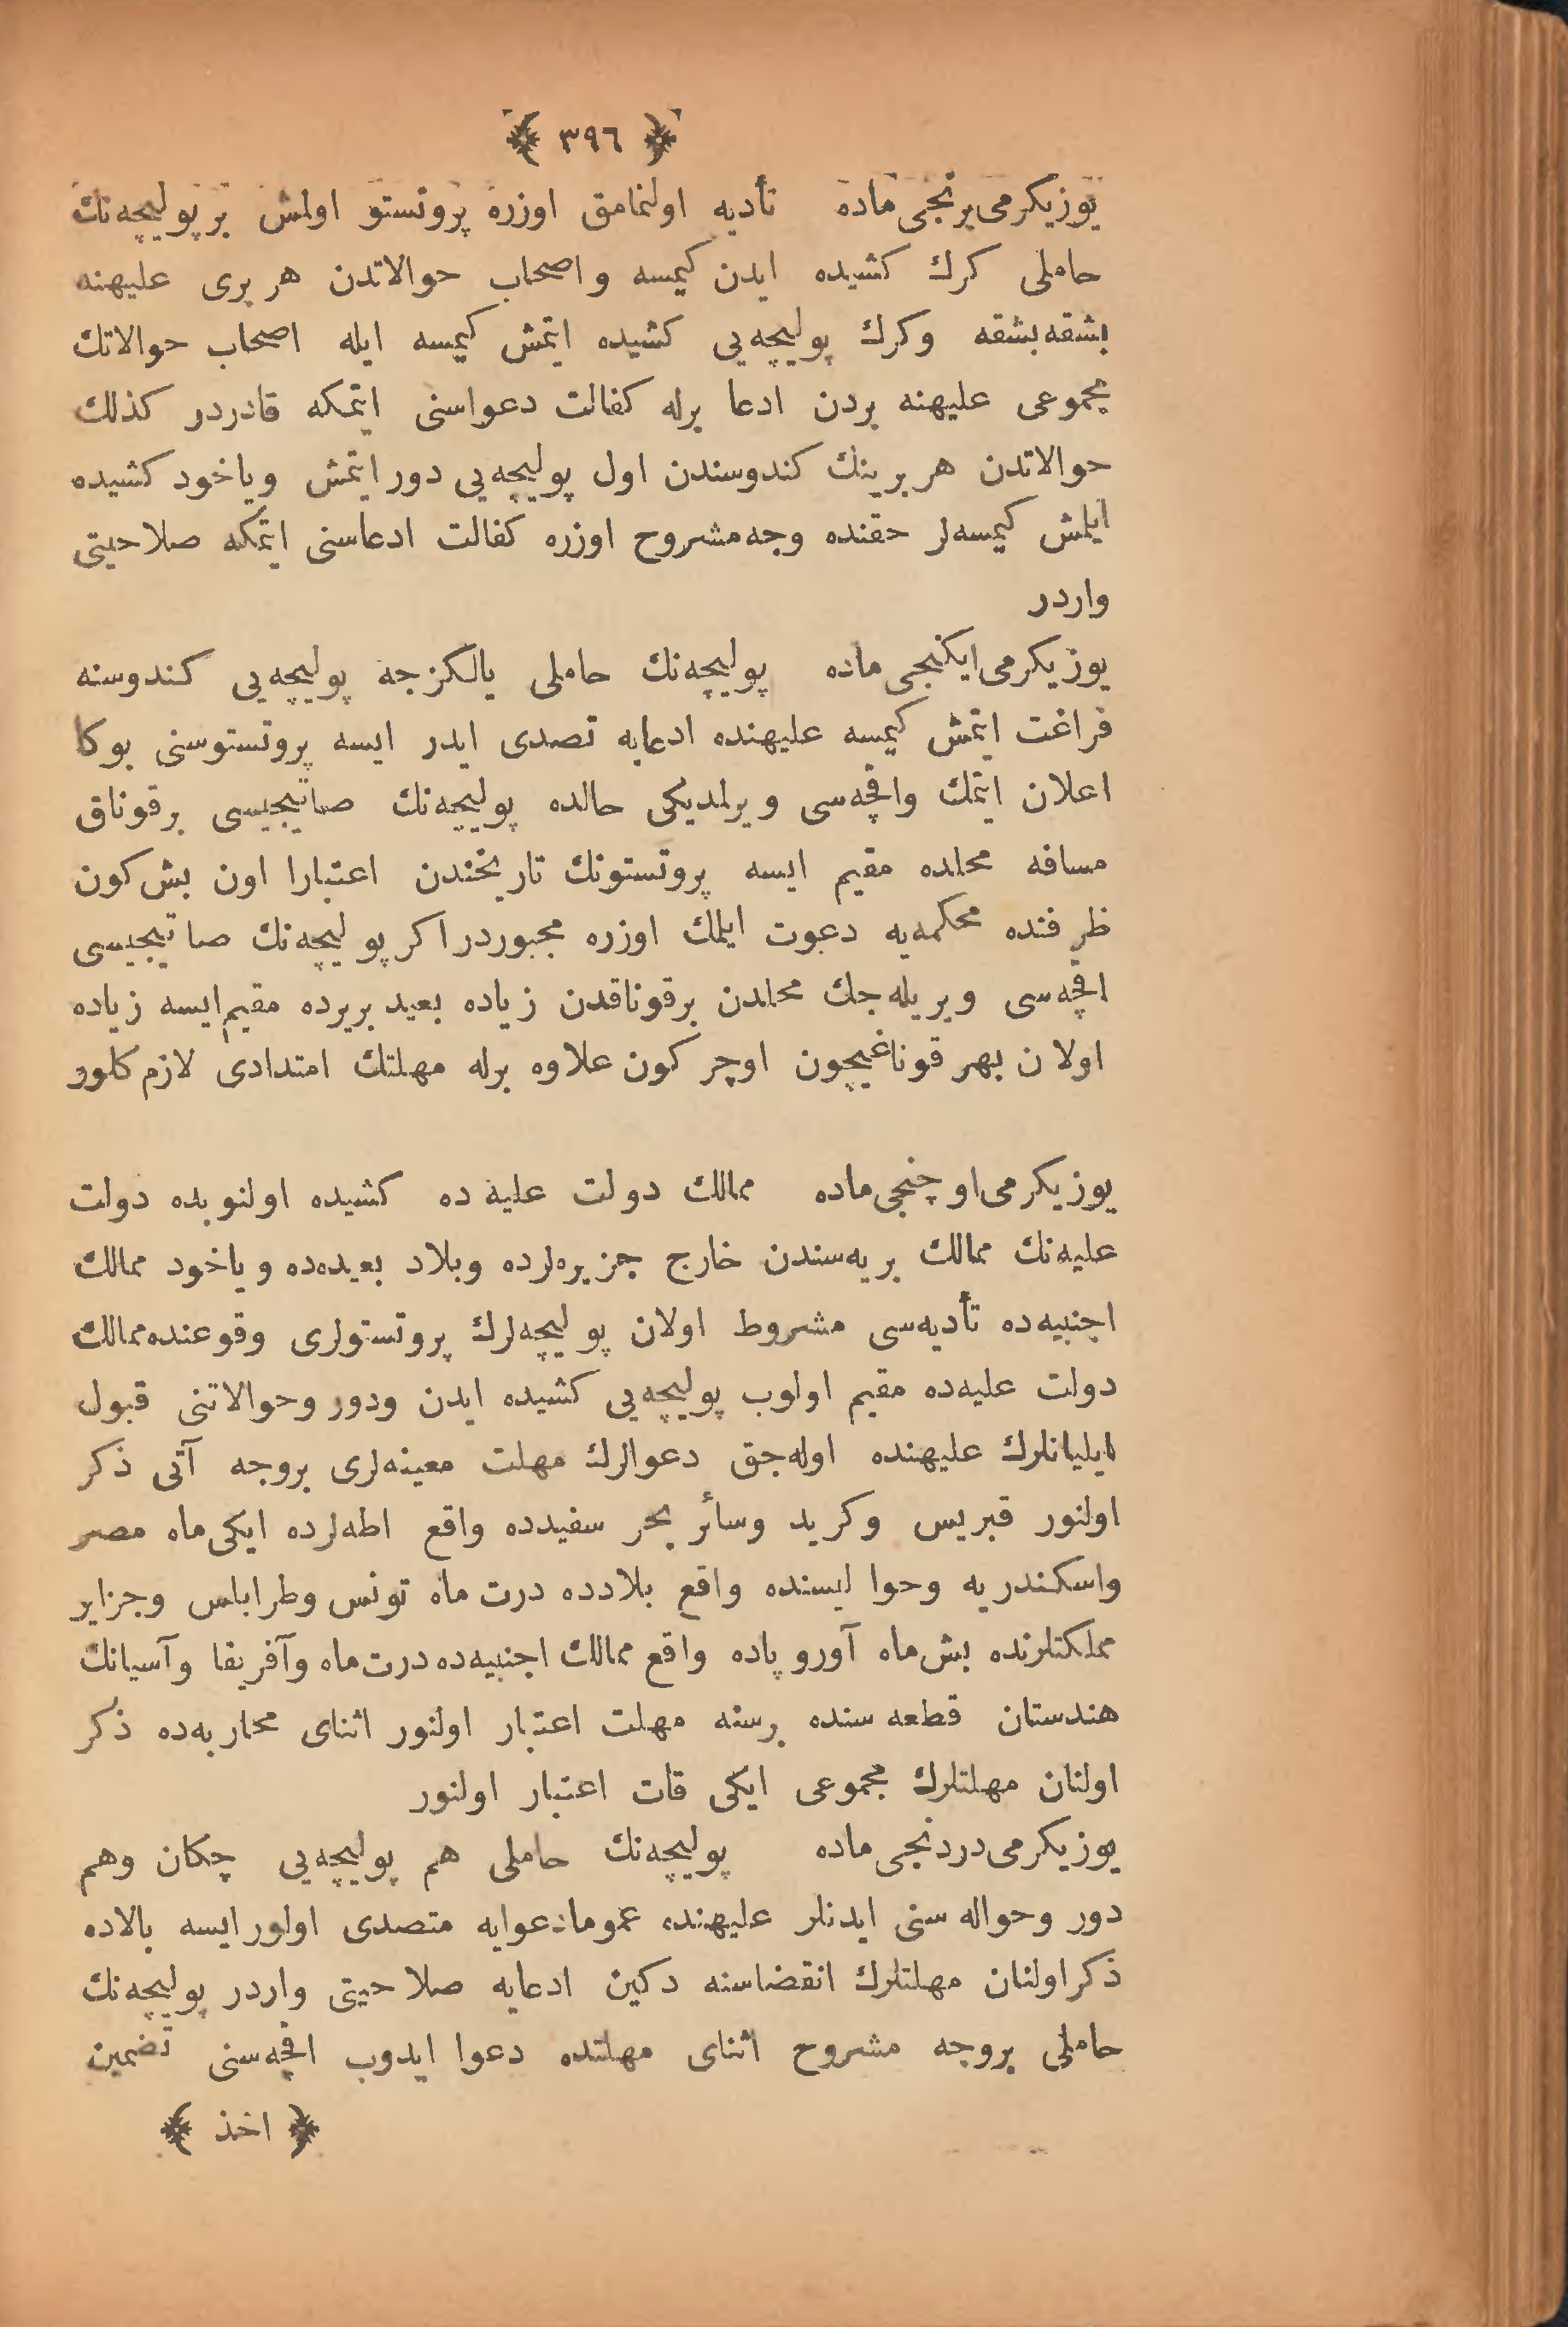 ﴿ ٣٩٦ ﴾
یوزیکرمی‌برنجی‌ماده تأدیه اولنمامق اوزره پروتستو اولمش بر پولیچه‌نك
حاملی کرك کشیده ایدن کیمسه و اصحاب حوالاتدن هر بری علیهنه
بشقه‌بشقه وکرك پولیچه‌یی کشیده ایتمش کیمسه ایله اصحاب حوالاتك
مجموعی علیهنه بردن ادعا برله کفالت دعواسنی ایتمکه قادردر کذلك
حوالاتدن هر برینك کندوسندن اول پولیچه‌یی دور ایتمش ویاخود کشیده
ایلمش کیمسه‌لر حقنده وجه‌مشروح اوزره کفالت ادعاسنی ایتمکه صلاحیتی
واردر
یوزیکرمی‌ایکنجی‌ماده پولیچه‌نك حاملی یالکزجه پولیچه‌یی کندوسنه
فراغت ایتمش کیمسه علیهنده ادعایه تصدی ایدر ایسه پروتستوسنی بوکا
اعلان ایتمك واقچه‌سی ویرلمدیکی حالده پولیچه‌نك صاتیجیسی برقوناق
مسافه محلده مقیم ایسه پروتستونك تاریخندن اعتبارا اون بش‌کون
ظرفنده محکمه‌یه دعوت ایلمك اوزره مجبوردر اکر پولیچه‌نك صاتیجیسی
اقچه‌سی ویریله‌جك محلدن برقوناقدن زیاده بعید بریرده مقیم‌ایسه زیاده
اولان بهر قوناغیچون اوچر کون علاوه برله مهلتك امتدادی لازم‌کلور
یوزیکرمی‌اوچنجی‌ماده ممالك دولت علیه ده کشیده اولنوبده دولت
علیه‌نك ممالك بریه‌سندن خارج جزیره‌لرده وبلاد بعیده‌ده ویاخود ممالك
اجنبیه‌ده تأدیه‌سی مشروط اولان پولیچه‌لرك پروتستولری وقوعنده‌ممالك
دولت علیه‌ده مقیم اولوب پولیچه‌یی کشیده ایدن ودور وحوالاتنی قبول
ایلیانلرك علیهنده اوله‌جق دعوالرك مهلت معینه‌لری بروجه آتی ذکر
اولنور قبریس وکرید وسائر بحر سفیدده واقع اطه‌لرده ایکی‌ماه مصر
واسکندریه وحوالیسنده واقع بلادده درت ماه تونس وطرابلس وجزایر
مملکتلرنده بش‌ماه آوروپاده واقع ممالك اجنبیه‌ده درت‌ماه وآفریقا وآسیانك
هندستان قطعه سنده برسنه مهلت اعتبار اولنور اثنای محاربه‌ده ذکر
اولنان مهلتلرك مجموعی ایکی قات اعتبار اولنور
یوزیکرمی‌دردنجی‌ماده پولیچه‌نك حاملی هم پولیچه‌یی چکان وهم
دور وحواله سنی ایدنلر علیهنده عموما دعوایه متصدی اولور ایسه بالاده
ذکراولنان مهلتلرك انقضاسنه دکین ادعایه صلاحیتی واردر پولیچه‌نك
حاملی بروجه مشروح اثنای مهلتده دعوا ایدوب اقچه‌سنی تضمین
﴿ اخذ ﴾